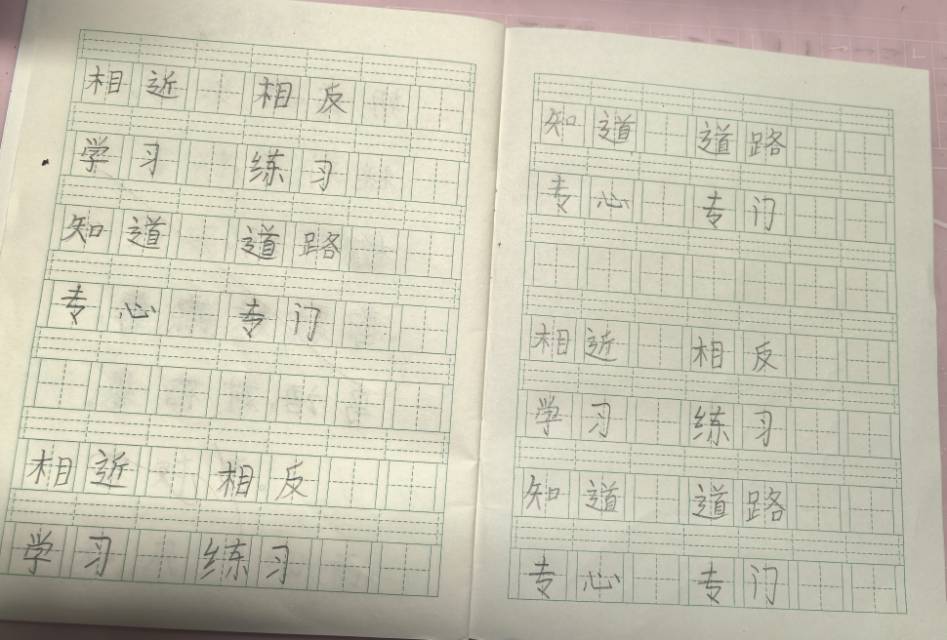 相近 相反
学习 练习
知道 道路
专心 专门
相近 相反
学习 练习
知道 道路
专心 专门
相近 相反
学习 练习
知道 道路
专心 专门